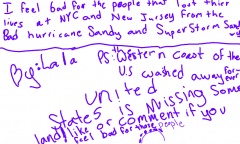 I feel bad for the people that lost thier
lives at NYC and New Jursey from the
Bad hurricane Sandy and SuperStorm Sandy
By: Lala
Ps: Western coast of the
US washed away for-
ever
United
States is missing some
land like or comment if you
feel bad for those people